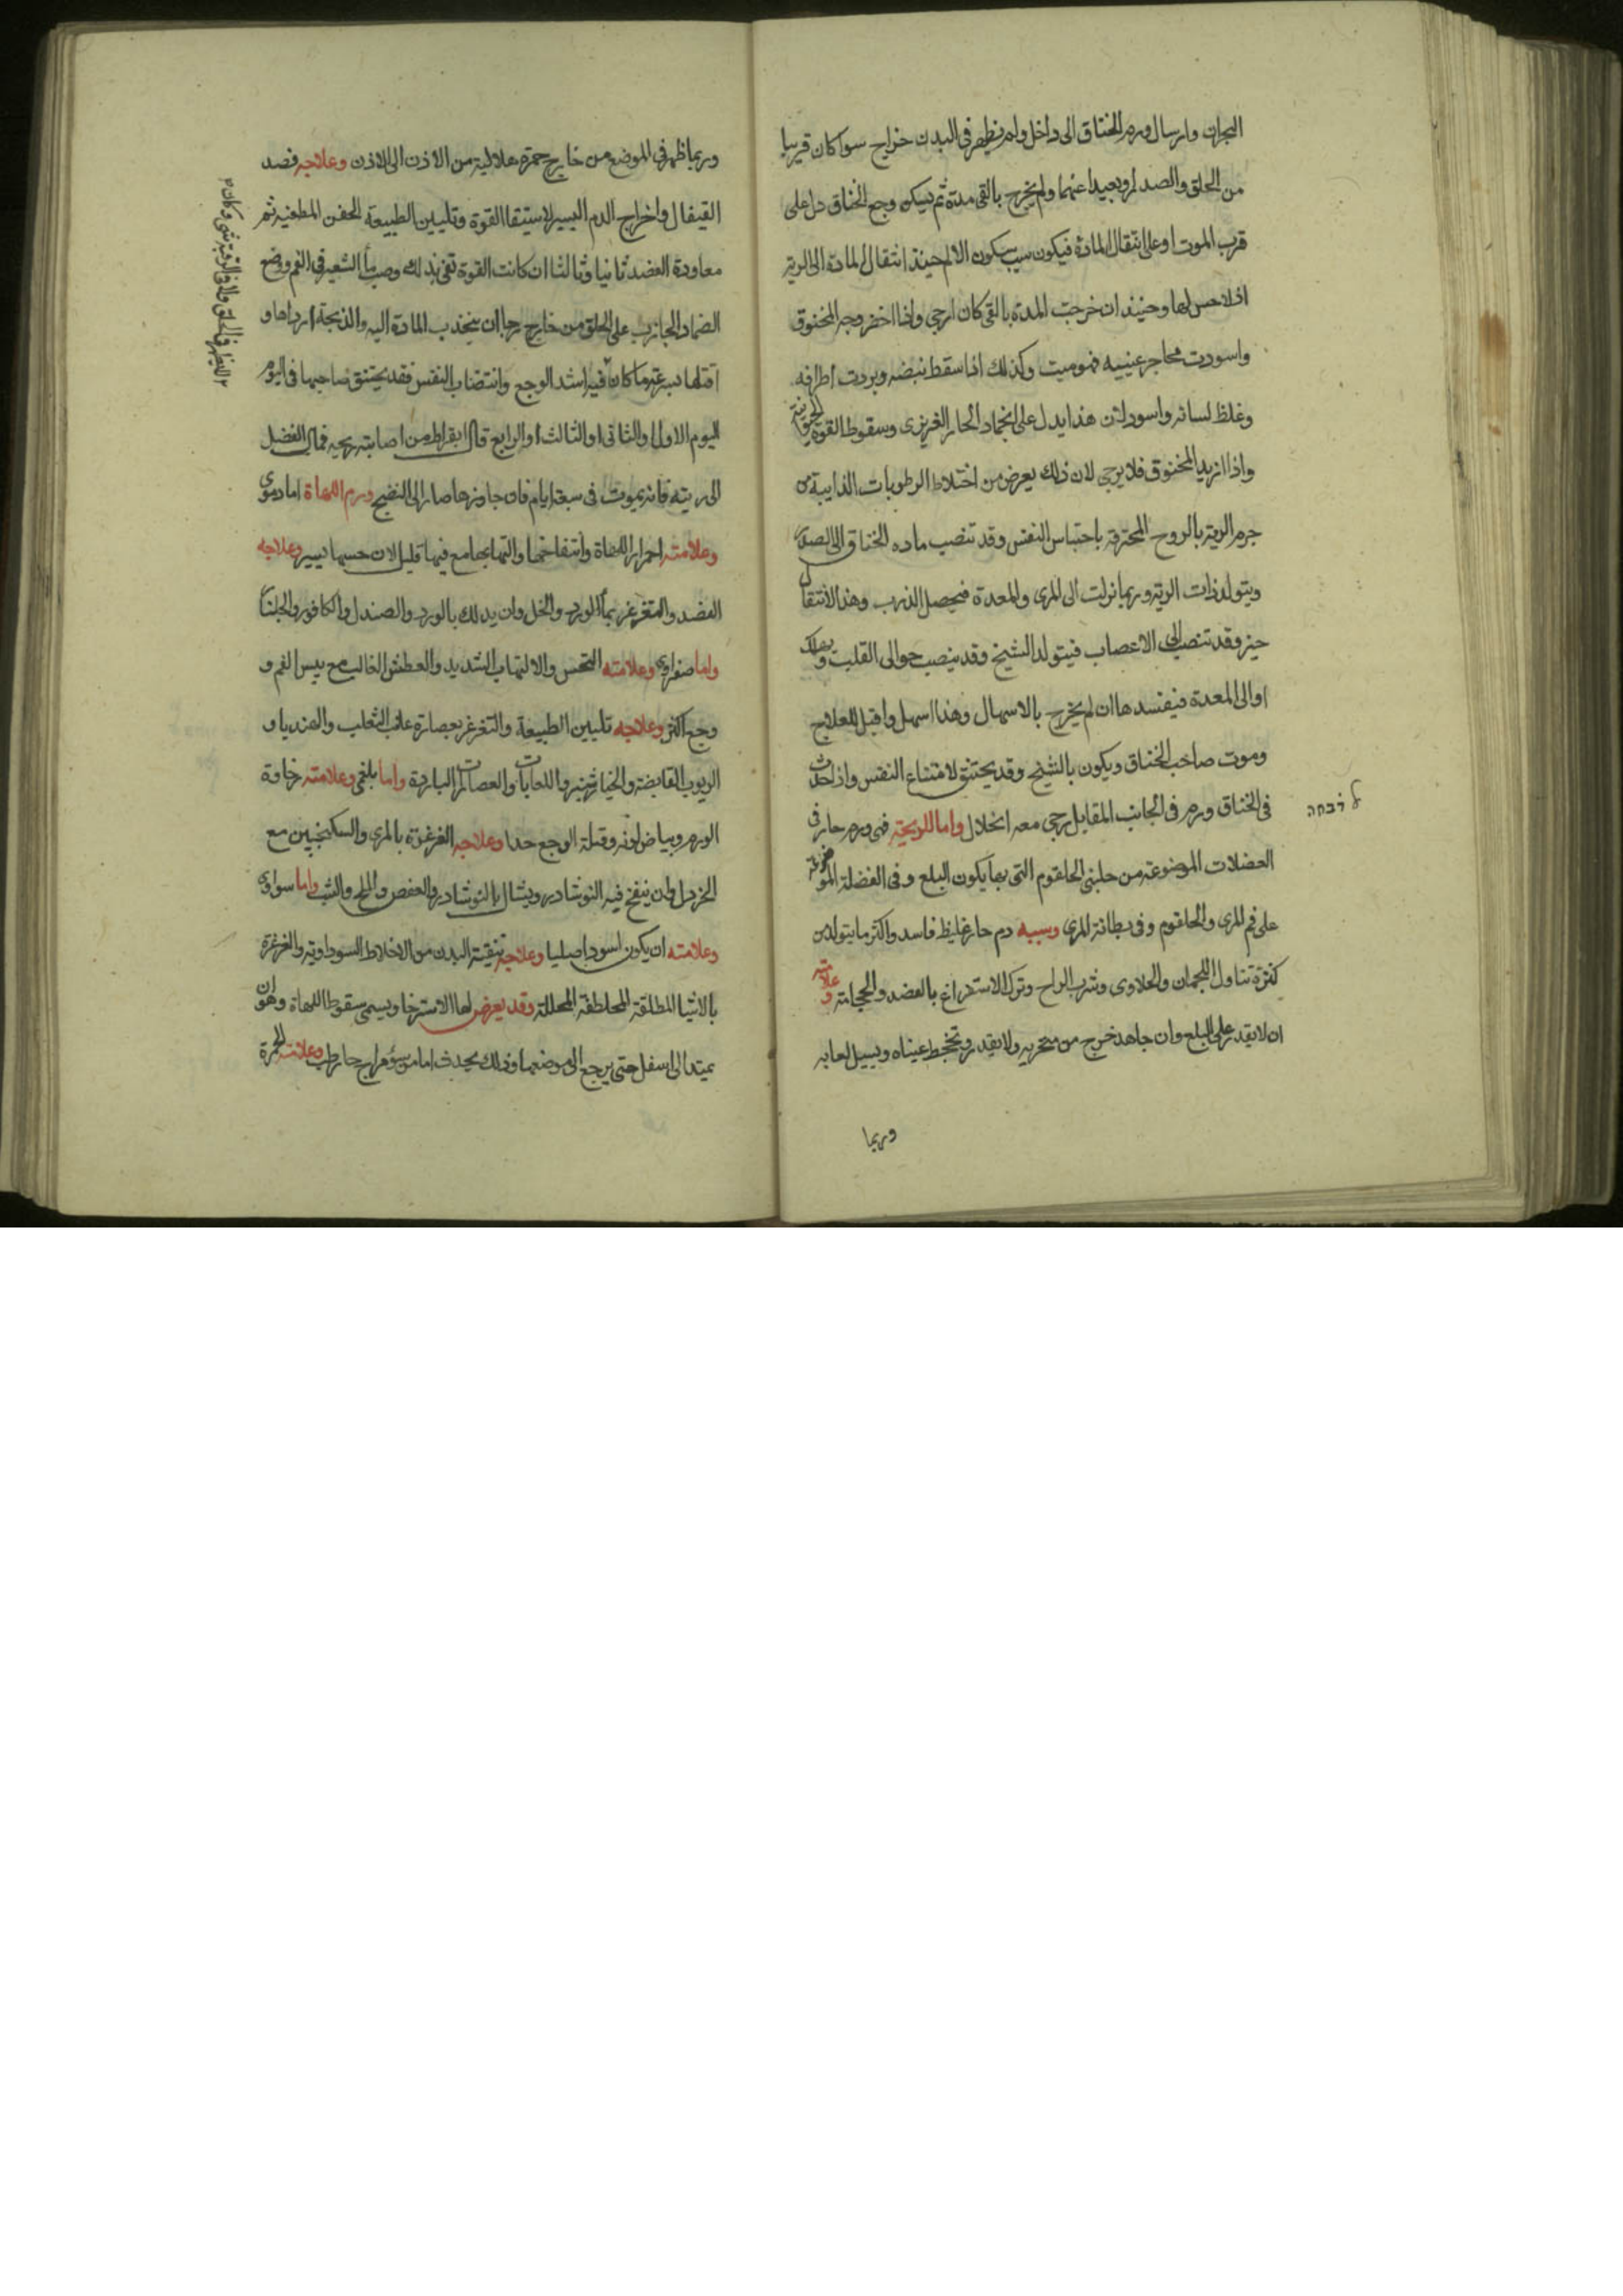 البحران وارسال ورم الخناق الى داخل ولم يظهر فى البدن خراج سوا كان قريبا
من الحلق والصدر او بعيدا عنهما ولم يخرج بالقى مدة ثم يسكن وجع الخناق دل على
قرب الموت او على انتقال المادة فيكون سبب سكون الالم حينئذ انتقال المادة الى الرية
اذ لا حس لها وحينئذ ان خرجت المدة بالقى كان ارجى واذا اخضر وجه المخنوق
واسودت محاجر عينيه فهو ميت وكذلك اذا سقط نبضه وبردت اطرافه
وغلظ لسانه واسود لان هذا يدل على انجماد الحار الغريزى وسقوط القوة
واذا ازبد المخنوق فلا يرجى لان ذلك يعرض من اختلاط الرطوبات الذايبة من
جرم الرية بالروح المحترقة باحتباس النفس وقد تنصب ماده الخناق الى الصدر
ويتولد ذات الرية وربما نزلت الى المرى والمعدة فيحصل الذرب وهذا الانتقال
خير وقد تنصب الى الاعصاب فيتولد التشنج وقد ينصب حوالى القلب ويهلك
او الى المعدة فيفسدها ان لم يخرج بالاسهال وهذا اسهل واقبل للعلاج
وموت صاحب الخناق ويكون بالتشنج وقد يختنق لامتناع النفس واذا حدث
فى الخناق ورم فى الجانب المقابل رجى معه انحلال واما الذبحة فهى ورم حار فى
العضلات الموضوعة من جانبى الحلقوم التى بها يكون البلع وفى العضلة الموضوعة
على فم المرى والحلقوم وفى بطانة المرى وسببه دم حار غليظ فاسد واكثر ما يتولد من
كثرة تناول اللحمان والحلاوى وشرب الراح وترك الاستفراغ بالفصد والحجامة وعلامته
ان لا يقدر على البلع وان جاهد خرج من منخريه ولا يقدر وتجحظ عيناه ويسيل لعابه
وربما
وربما ظهر فى الموضع من خارج حمرة هلالية من الاذن الى الاذن وعلاجه فصد
القيفال واخراج الدم اليسير لاستبقا القوة وتليين الطبيعة الحقن المطفية ثم
معاودة الفصد ثانيا وثالثا ان كانت القوة تفى بذلك وصب مأ الشعير فى الفم ووضع
الضماد الجاذب على الحلق من خارج رجا ان ينجذب المادة اليه والذبحة ارداها و
اقتلها بسرعة ما كان فيه اشد الوجع وانتصاب النفس فقد يختنق صاحبها فى اليوم
اليوم الاول او الثانى او الثالث او الرابع قال ابقراط من اصابته ذبحه فمال الفضل
الى ريته فانه يموت فى سبعة ايام فان جاوزها صار الى النضج ورم اللهاة اما دموى
وعلامته احمرار اللهاة وانتفاخها والتهابها مع قليل لان حسها يسير وعلاجه
الفصد والتغرغر بمأ الورد والخل وان يدلك بالورد والصندل والكافور والجلنار
واما صفراوى وعلامته التحس والالتهاب الشديد والعطش الغالب مع يبس الفم و
وجع اكثر وعلاجه تليين الطبيعة والتغرغر بعصارة عنب الثعلب والهندبا و
الربوب القابضة والخيارشنبر واللعابات والعصارات الباردة واما بلغمى وعلامته رخاوة
الورم وبياض لونه وقلة الوجع جدا وعلاجه الغرغرة بالمرى والسكنجبين مع
الخردل وان ينفخ فيه النوشادر ويشال بالنوشادر والعفص والملح والشب واما سوداوى
وعلامته ان يكون اسود اصليا وعلاجه تنقية البدن من الاخلاط السوداوية والغرغرة
بالاشيا المطلقة الملطفة المحللة وقد يعرض لها الاسترخا ويسمى سقوط اللهاة وهو ان
يمتد الى اسفل حتى يرجع الى موضعها وذلك يحدث اما من سؤ مزاج حار رطب وعلامته الحمرة